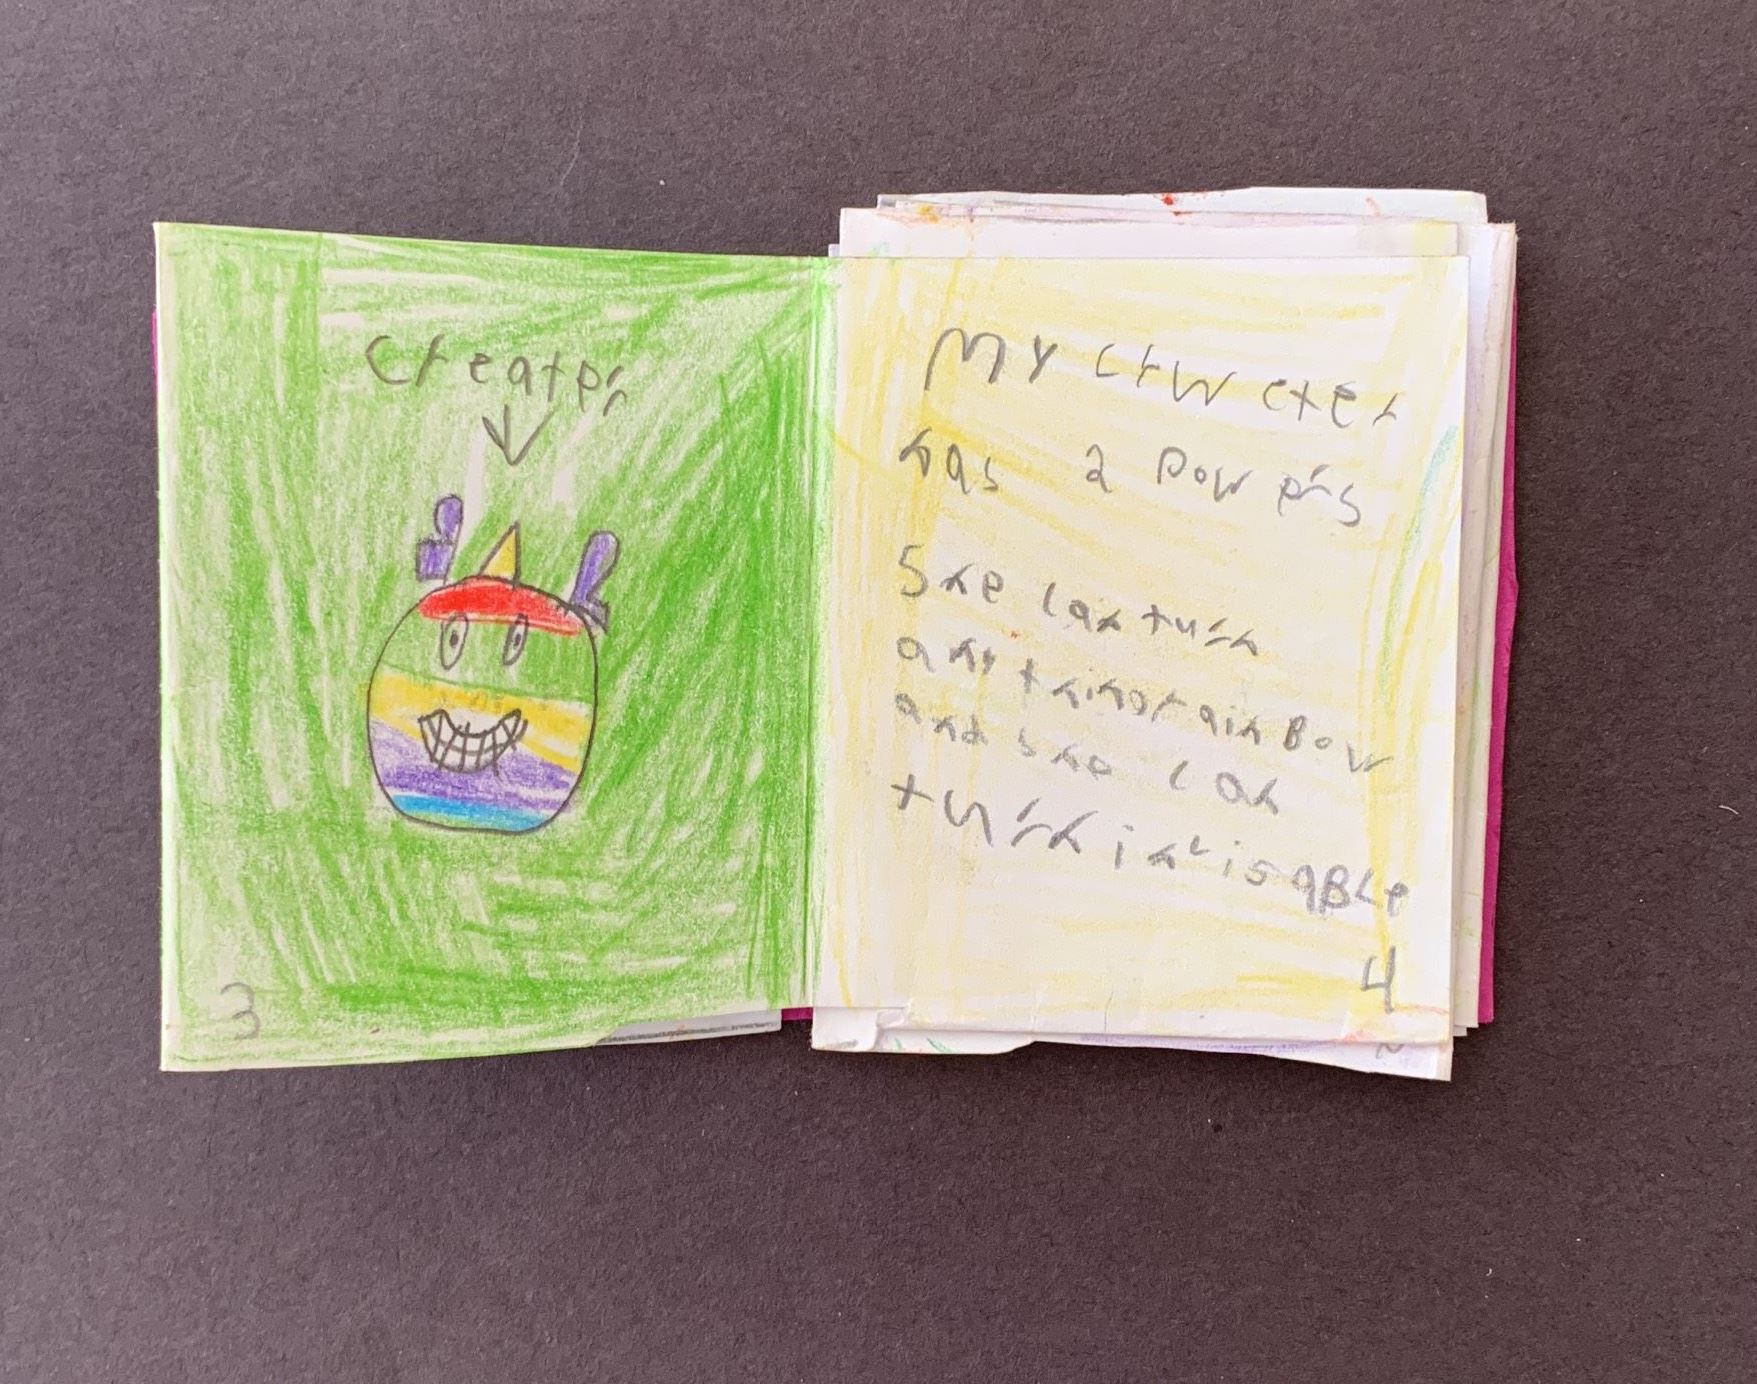 creater
3
My crw cter
has a powers
She can turn
any thing rainBow
and she can
turn invisaBLe
4